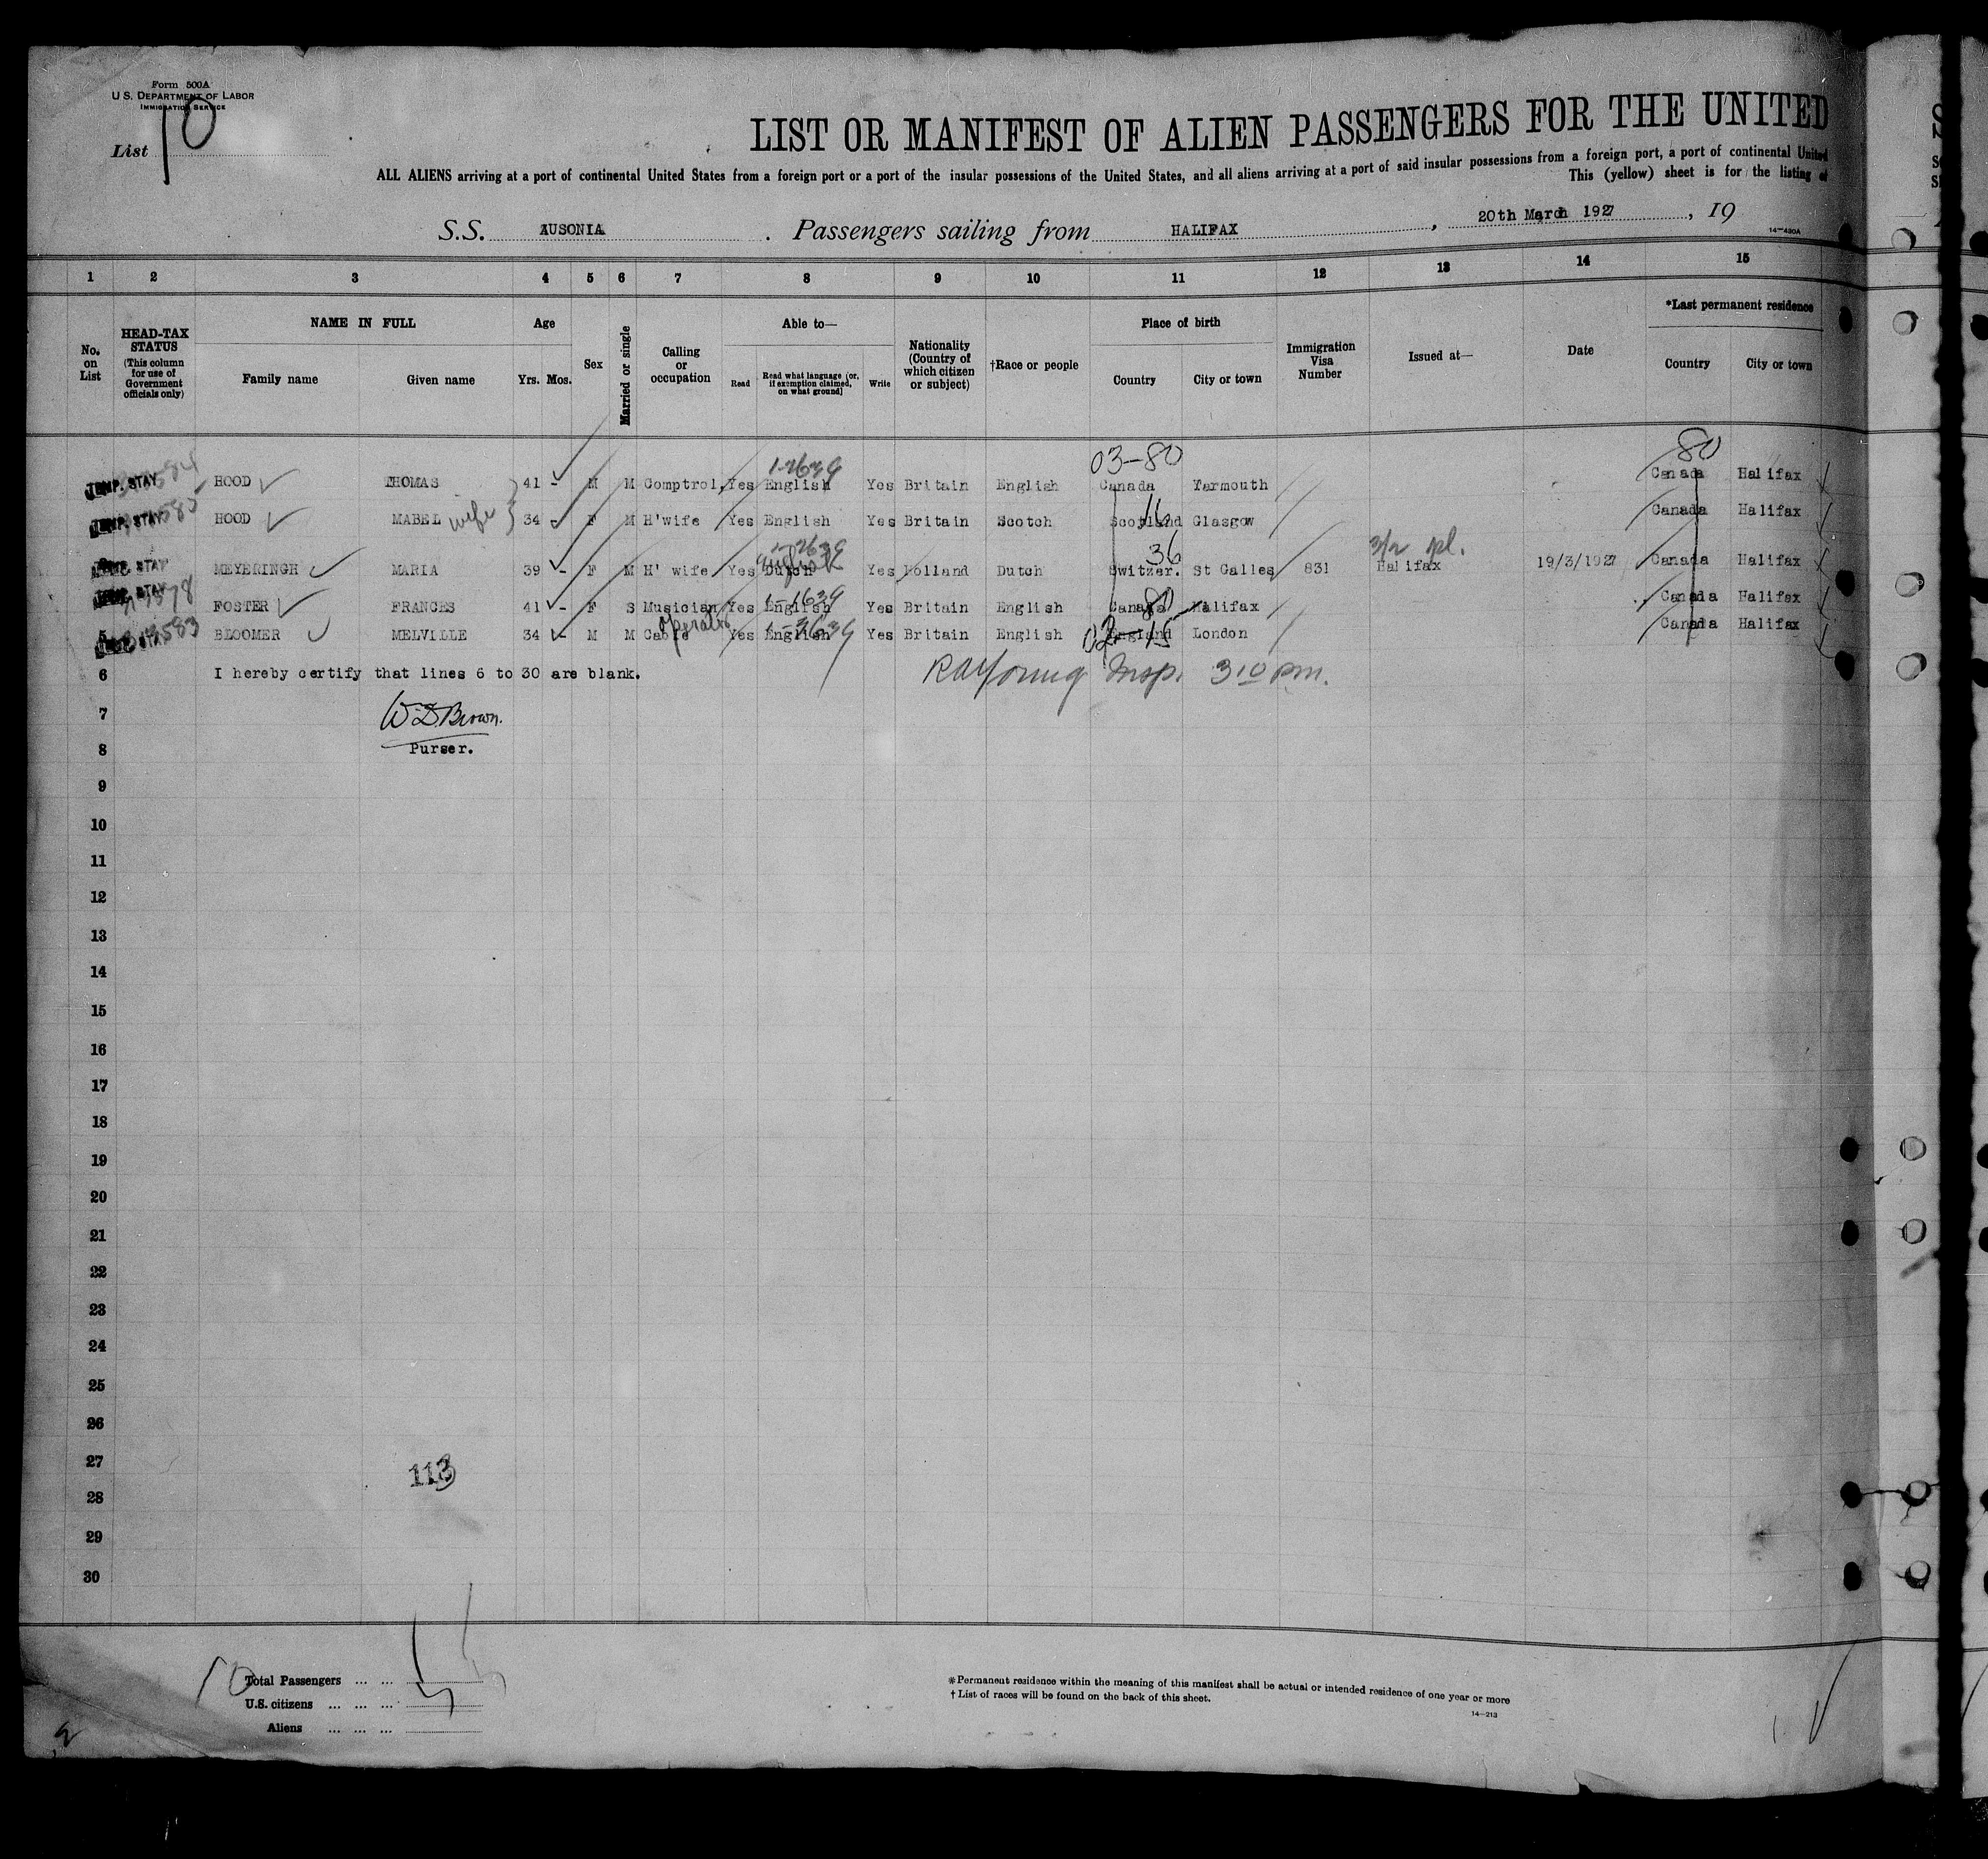 Form 500A
U.S. DEPARTMENT OF LABOR
IMMIGRATION SERVICE
List 10
LIST OR MANIFEST OF ALIEN PASSENGERS FOR THE UNITED
ALL ALIENS arriving at a port of continental United States from a foreign port or a port of the insular possessions of the United States, and all aliens arriving at a port of said insular possessions from a foreign port, a port of continental United
This (yellow) sheet is for the listing of
S.S. AUSONIA . Passengers sailing from HALIFAX , 20th March 1927 , 19
14-430A
1 2 3 4 5 6 7 8 9 10 11 12 13 14 15
No. on List
HEAD-TAX STATUS (This column for use of Government officials only)
NAME IN FULL
Family name Given name
Age
Yrs. Mos.
Sex
Married or single
Calling or occupation
Able to—
Read Read what language (or, if exemption claimed, on what ground) Write
Nationality (Country of which citizen or subject)
†Race or people
Place of birth
Country City or town
Immigration Visa Number
Issued at—
Date
*Last permanent residence
Country City or town
03-80 80
1-2639
TEMP. STAY HOOD THOMAS 41 - M M Comptrol, Yes English Yes Britain English Canada Yarmouth Canada Halifax
TEMP. STAY HOOD MABEL wife 34 F M H'wife Yes English Yes Britain Scotch Scotland 16 Glasgow Canada Halifax
1-2639 36 3/2 pl.
STAY MEYERINGH MARIA 39 - F M H' wife Yes Dutch English Yes Holland Dutch Switzer. St Galles 831 Halifax 19/3/1927 Canada Halifax
STAY FOSTER FRANCES 41 - F S Musician Yes English 1-1639 Yes Britain English Canada 80 Halifax Canada Halifax
operator
5 BLOOMER MELVILLE 34 - M M Cable Yes English 1-3639 Yes Britain English England London Canada Halifax
6 I hereby certify that lines 6 to 30 are blank. RA Young Insp. 3 10 pm.
7 W D Brown.
8 Purser.
9
10
11
12
13
14
15
16
17
18
19
20
21
22
23
24
25
26
27
113
28
29
30
10 Total Passengers ... ... 5
U.S. citizens ... ... ...
Aliens ... ... ...
*Permanent residence within the meaning of this manifest shall be actual or intended residence of one year or more
† List of races will be found on the back of this sheet.
14-213